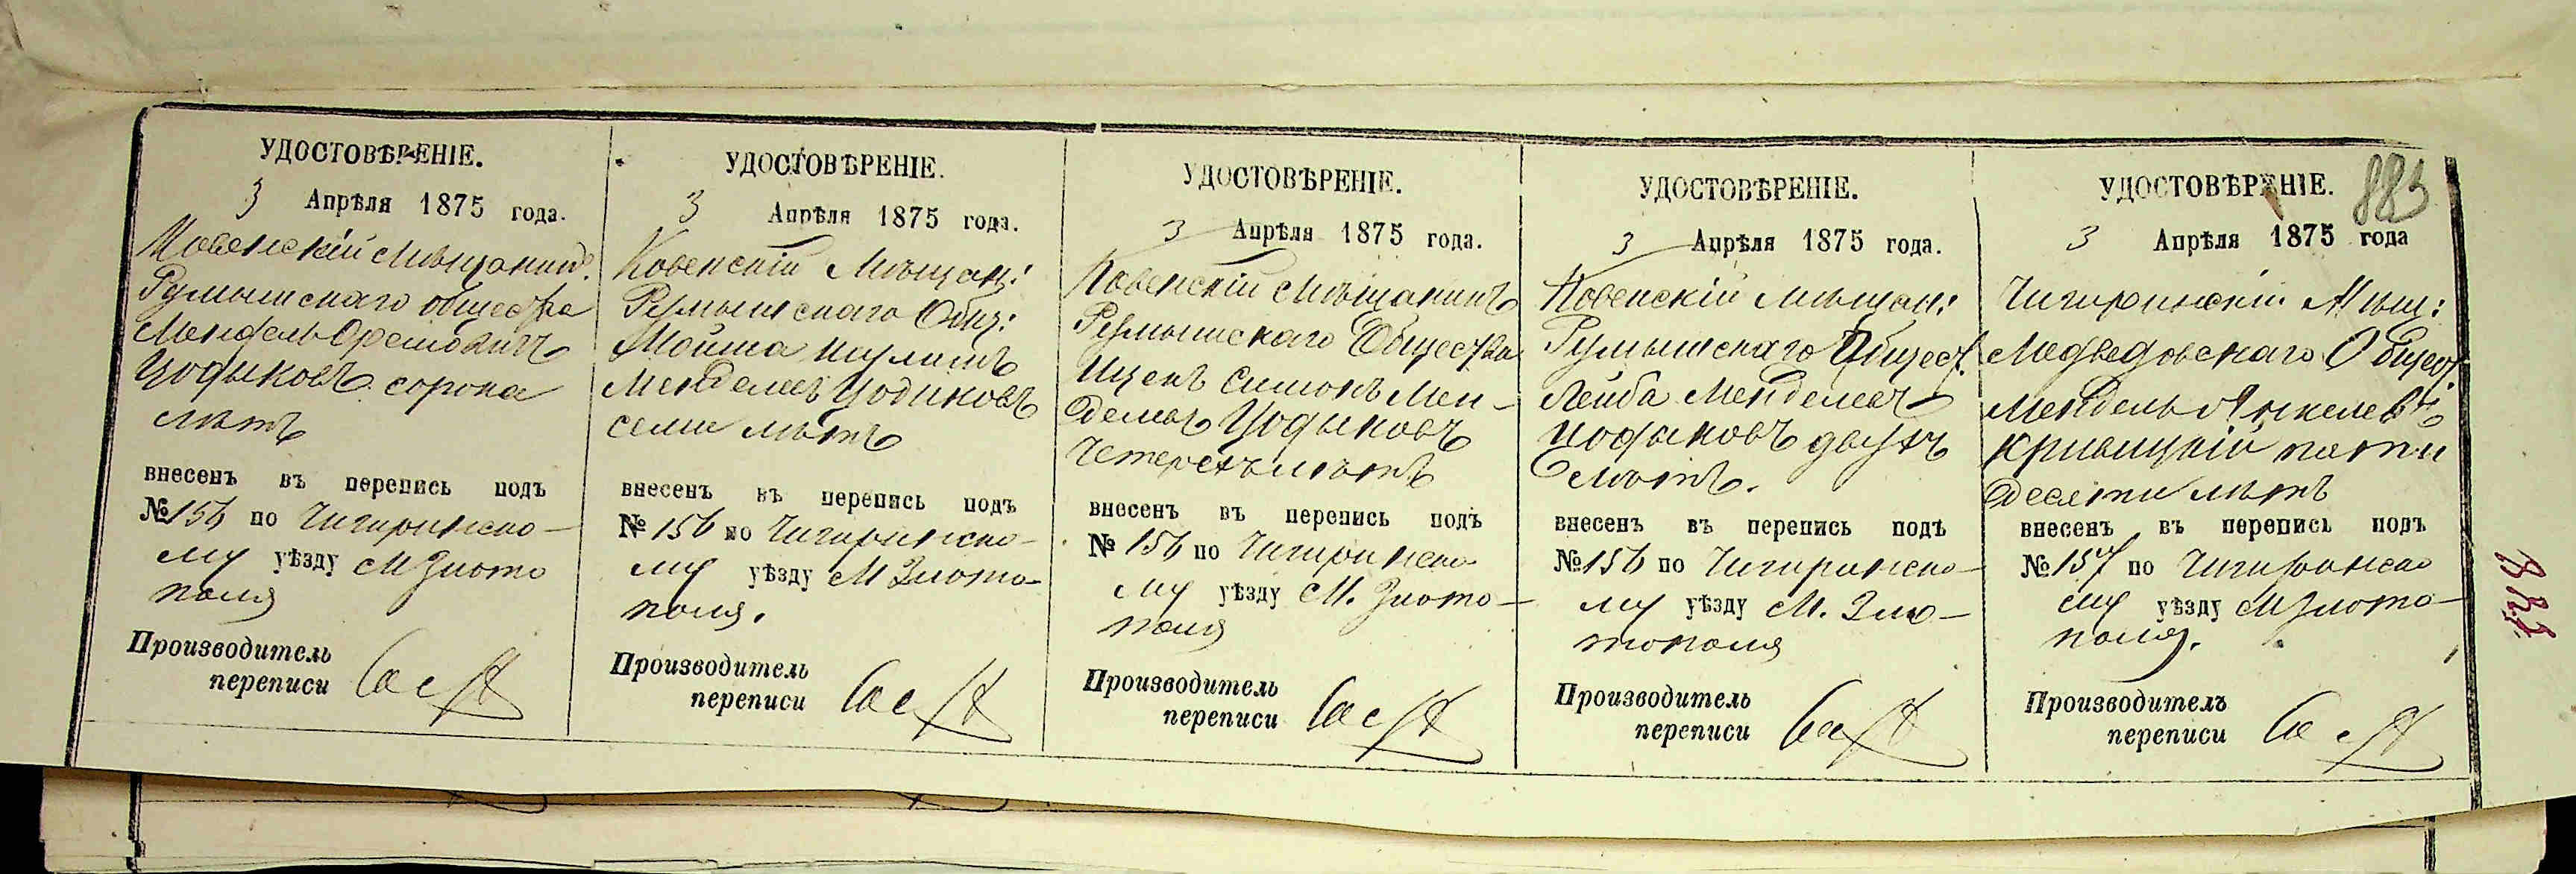 883
УДОСТОВѢРЕНІЕ.
3 Апрѣля 1875 года.
Ковенскій Мѣщанин.
Румшискаго общества
Мендель Орелiовичъ
Цодыковъ сорока
лѣтъ
внесенъ въ перепись подъ
№ 156 по Чигиринско-
му уѣзду М Злото
поля
Производитель
переписи
УДОСТОВѢРЕНІЕ.
3 Апрѣля 1875 года.
Ковенскій Мѣщан:
Румшискаго Общ:
Мойша
Менделевъ Цодиковъ
семи лѣтъ
внесенъ въ перепись подъ
№ 156 по Чигиринско-
му уѣзду М Злото-
поля.
Производитель
переписи
УДОСТОВѢРЕНІЕ.
3 Апрѣля 1875 года.
Ковенскій Мѣщанинъ
Румшискаго Общества
Ицекъ Симонъ Мен-
делевъ Цодыковъ
Четерехъ лѣтъ
внесенъ въ перепись подъ
№ 156 по Чигиринско
му уѣзду М. Злото-
поля
Производитель
переписи
УДОСТОВѢРЕНІЕ.
3 Апрѣля 1875 года.
Ковенскій Мѣщан:
Румшискаго Общест.
Лейба Менделевъ
Цодыковъ двухъ
лѣтъ.
внесенъ въ перепись подъ
№ 156 по Чигиринско-
му уѣзду М. Зло-
тополя
Производитель
переписи
УДОСТОВѢРЕНІЕ.
3 Апрѣля 1875 года
Чигиринскій Мѣщ:
Медведовскаго Общест.
Мендель Янкелевъ
Кривицкій пяти
десяти лѣтъ
внесенъ въ перепись подъ
№ 157 по Чигиринско
му уѣзду М Злото-
поля.
Производитель
переписи